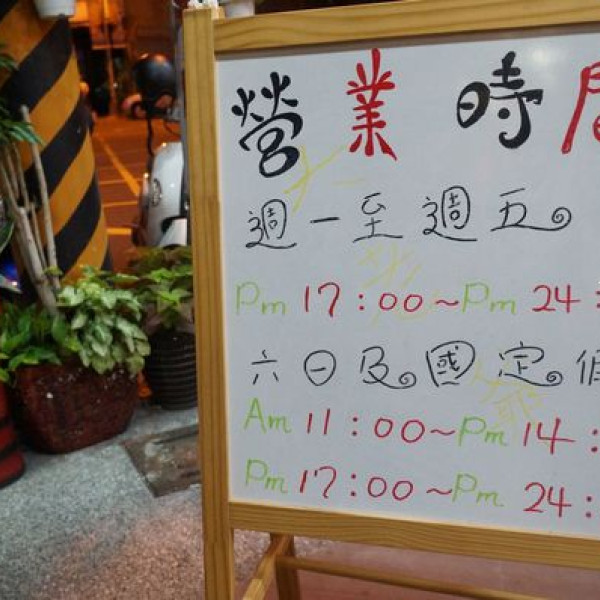 營業時
週一至週五
Pm 17:00~Pm 24:
六日及國定
Am 11:00~Pm 14:
Pm 17:00~Pm 24: